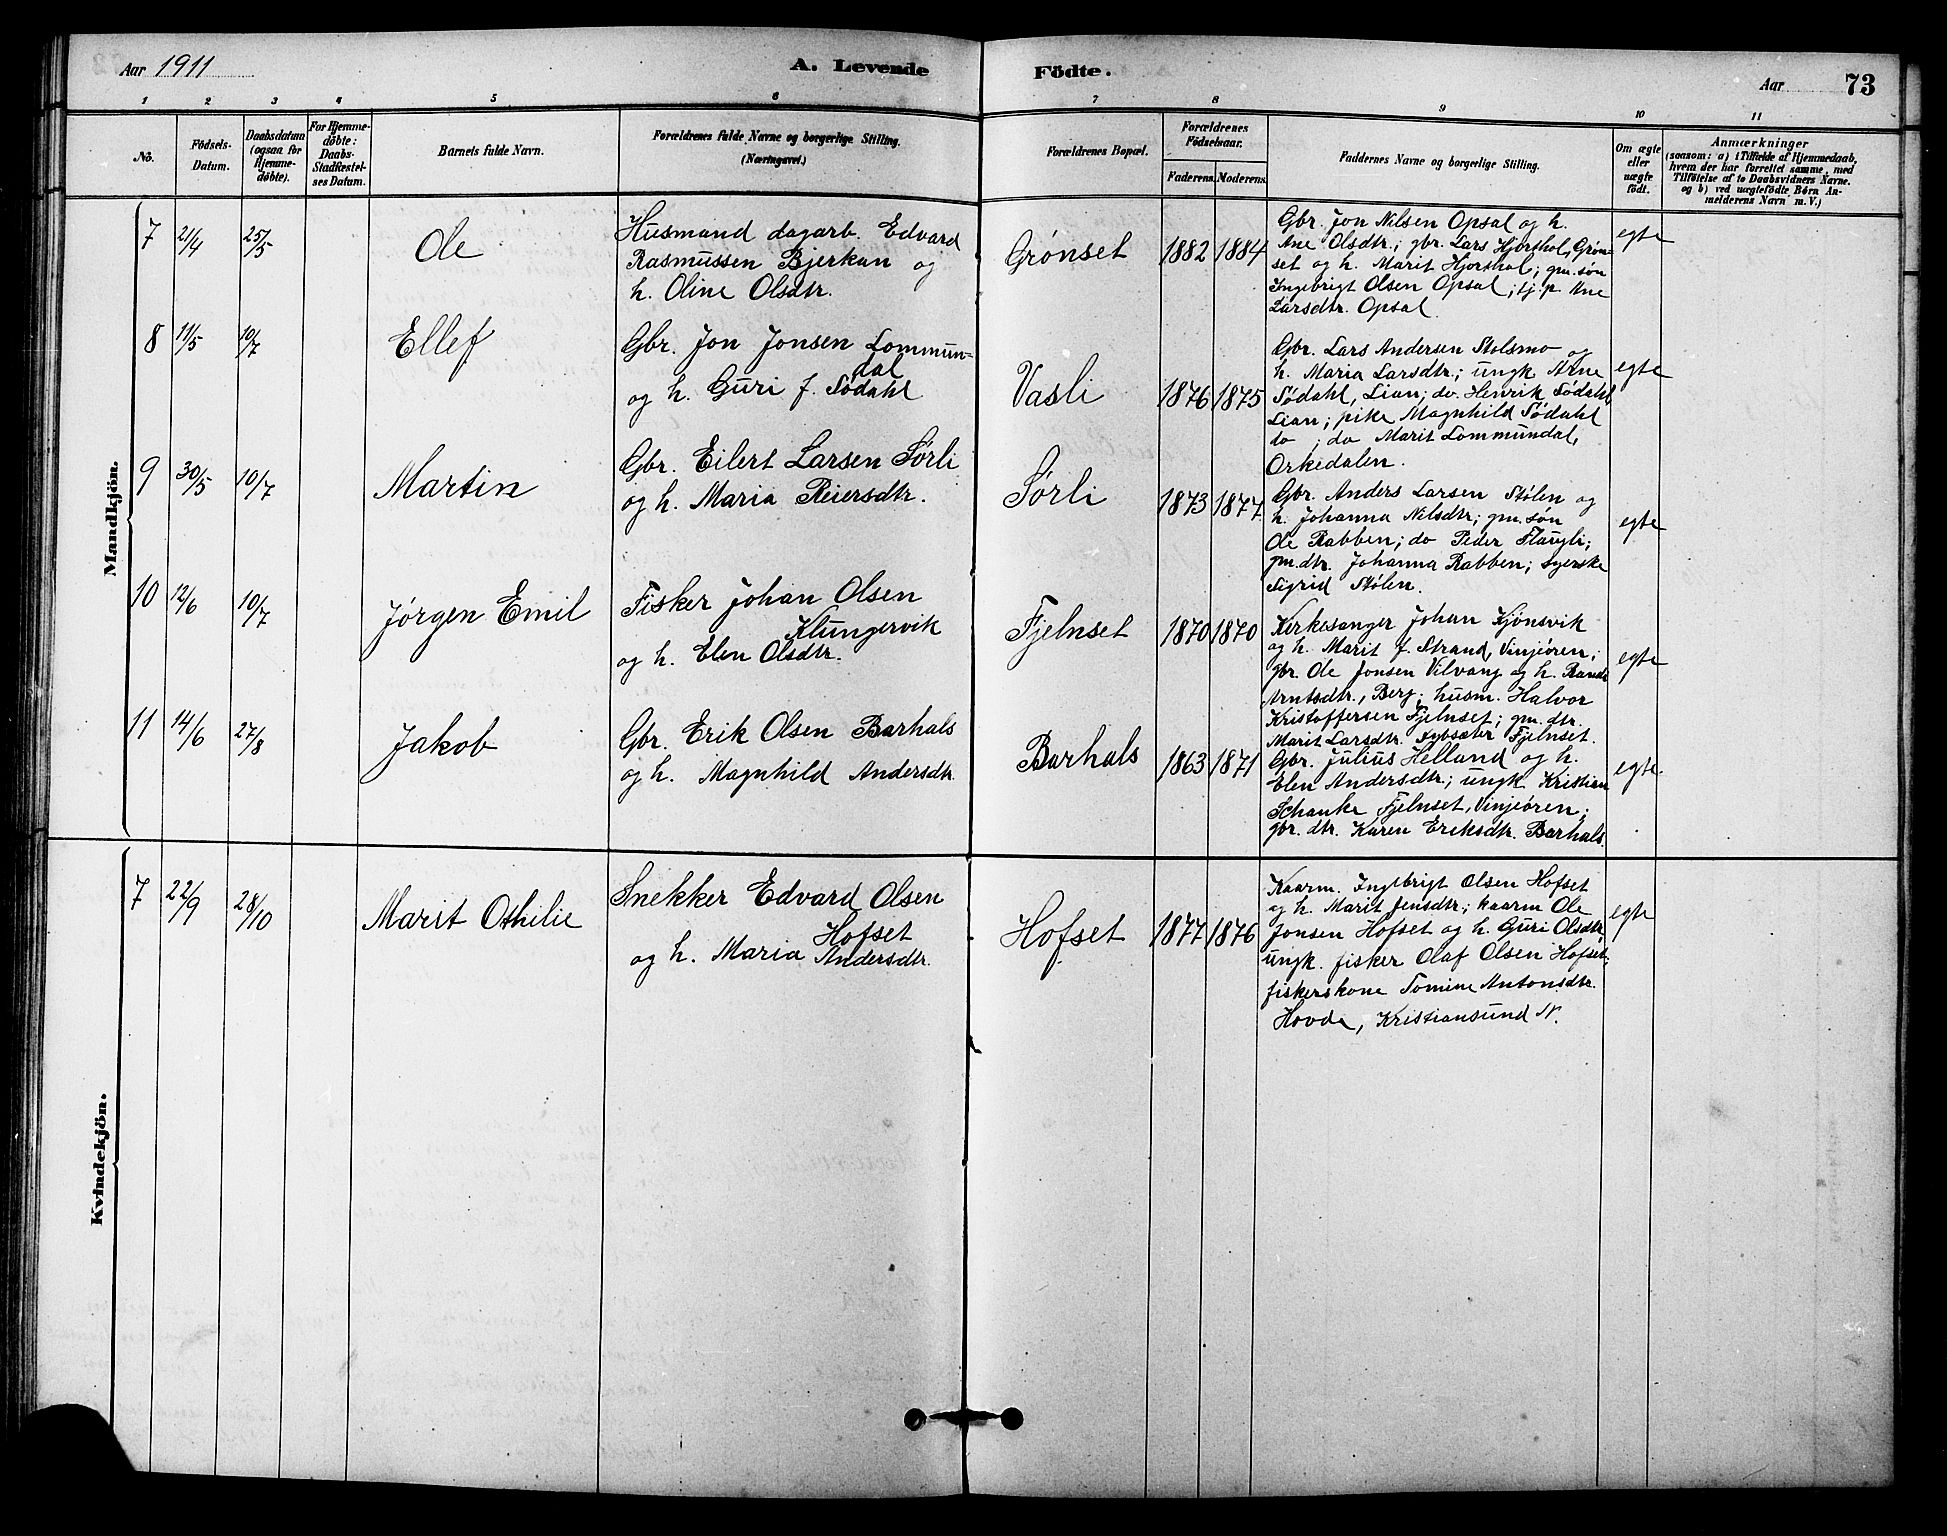 Aar 1911
A. Levende Födte.
Aar 73
1 2 3 4 5 6 7 8 9 10 11
No.
Födsels-
Datum.
Daabsdatum
(ogsaa for
Hjemme-
døbte).
For Hjemme-
døbte:
Daabs-
Stadfæstel-
ses Datum.
Barnets fulde Navn.
Forældrenes fulde Navne og borgerlige Stilling.
(Næringsvei.)
Forældrenes Bopæl.
Forældrenes
Födselsaar.
Faderens. Moderens.
Faddernes Navne og borgerlige Stilling.
Om ægte
eller
uægte
födt.
Anmærkninger
(saasom: a) i Tilfælde af Hjemmedaab,
hvem der har forrettet samme, med
Tilföielse af to Daabsvidners Navne.
og b) ved uægtefödte Börn An-
melderens Navn m.V.)
Mandkjön.
7 21/4 25/5 Ole
Husmand dagarb. Edvard
Rasmussen Bjerkan og
h. Oline Olsdtr.
Grønset 1882 1884
Gbr. Jon Nilsen Opsal og h.
Ane Olsdtr.; gbr. Lars Hjorshol, Grøn-
set og h. Marit Hjorshol; gm. søn
Ingebrigt Olsen Opsal; tj.p. Ane
Larsdtr. Opsal.
egte
8 11/5 10/7 Ellef
Gbr. Jon Jonsen Lommun-
dal
og h. Guri f. Sødahl
Vasli 1876 1875
Gbr. Lars Andersen Stolsmo og
h. Maria Larsdtr.; ungk Arne
Sødahl, Lian; do. Henrik Sødahl
Lian; pike Magnhild Sødahl
do ; do Marit Lommundal,
Orkedalen.
egte
9 30/5 10/7 Martin
Gbr. Eilert Larsen Sørli
og h. Maria Reiersdtr.
Sørli 1873 1877
Gbr. Anders Larsen Stølen og
h. Johanna Nilsdtr; gm. søn
Ole Rabben; do Peder Flaugli;
gm.dtr. Johanna Rabben; syerske
Sigrid Stølen.
egte
10 12/6 10/7 Jørgen Emil
Fisker Johan Olsen
Klungervik
og h. Elen Olsdtr.
Fjelnset 1870 1870
Kirkesanger Johan Kjønsvik
og h. Marit f. Strand, Vinjøren;
gbr. Ole Jonsen Vilvang og h. Randi
Arntsdtr., Berg; husm. Halvor
Kristoffersen Fjelnset; gm. dtr.
Marit Larsdtr. Fjelnset.
egte
11 14/6 27/8 Jakob
Gbr. Erik Olsen Barhals
og h. Magnhild Andersdtr.
Barhals 1863 1871
Gbr. Julius Helland og h.
Elen Andersdtr; ungk Kristian
Schanke Fjelnset, Vinjeøren;
gbr. dtr. Karen Eriksdtr. Barhals.
egte.
Kvindekjön.
7 22/9 28/10 Marit Othilie
Snekker Edvard Olsen
Hofset
og h. Maria Andersdtr.
Hofset 1877 1876
Kaarm. Ingebrigt Olsen Hofset
og h. Marit Jensdtr; kaarm Ole
Jonsen Hofset og h. Guri Olsdtr,
ungk. fisker Olaf Olsen Hofset;
fiskerskone Tomine Antonsdtr.
Hovde, Kristiansund N.
egte